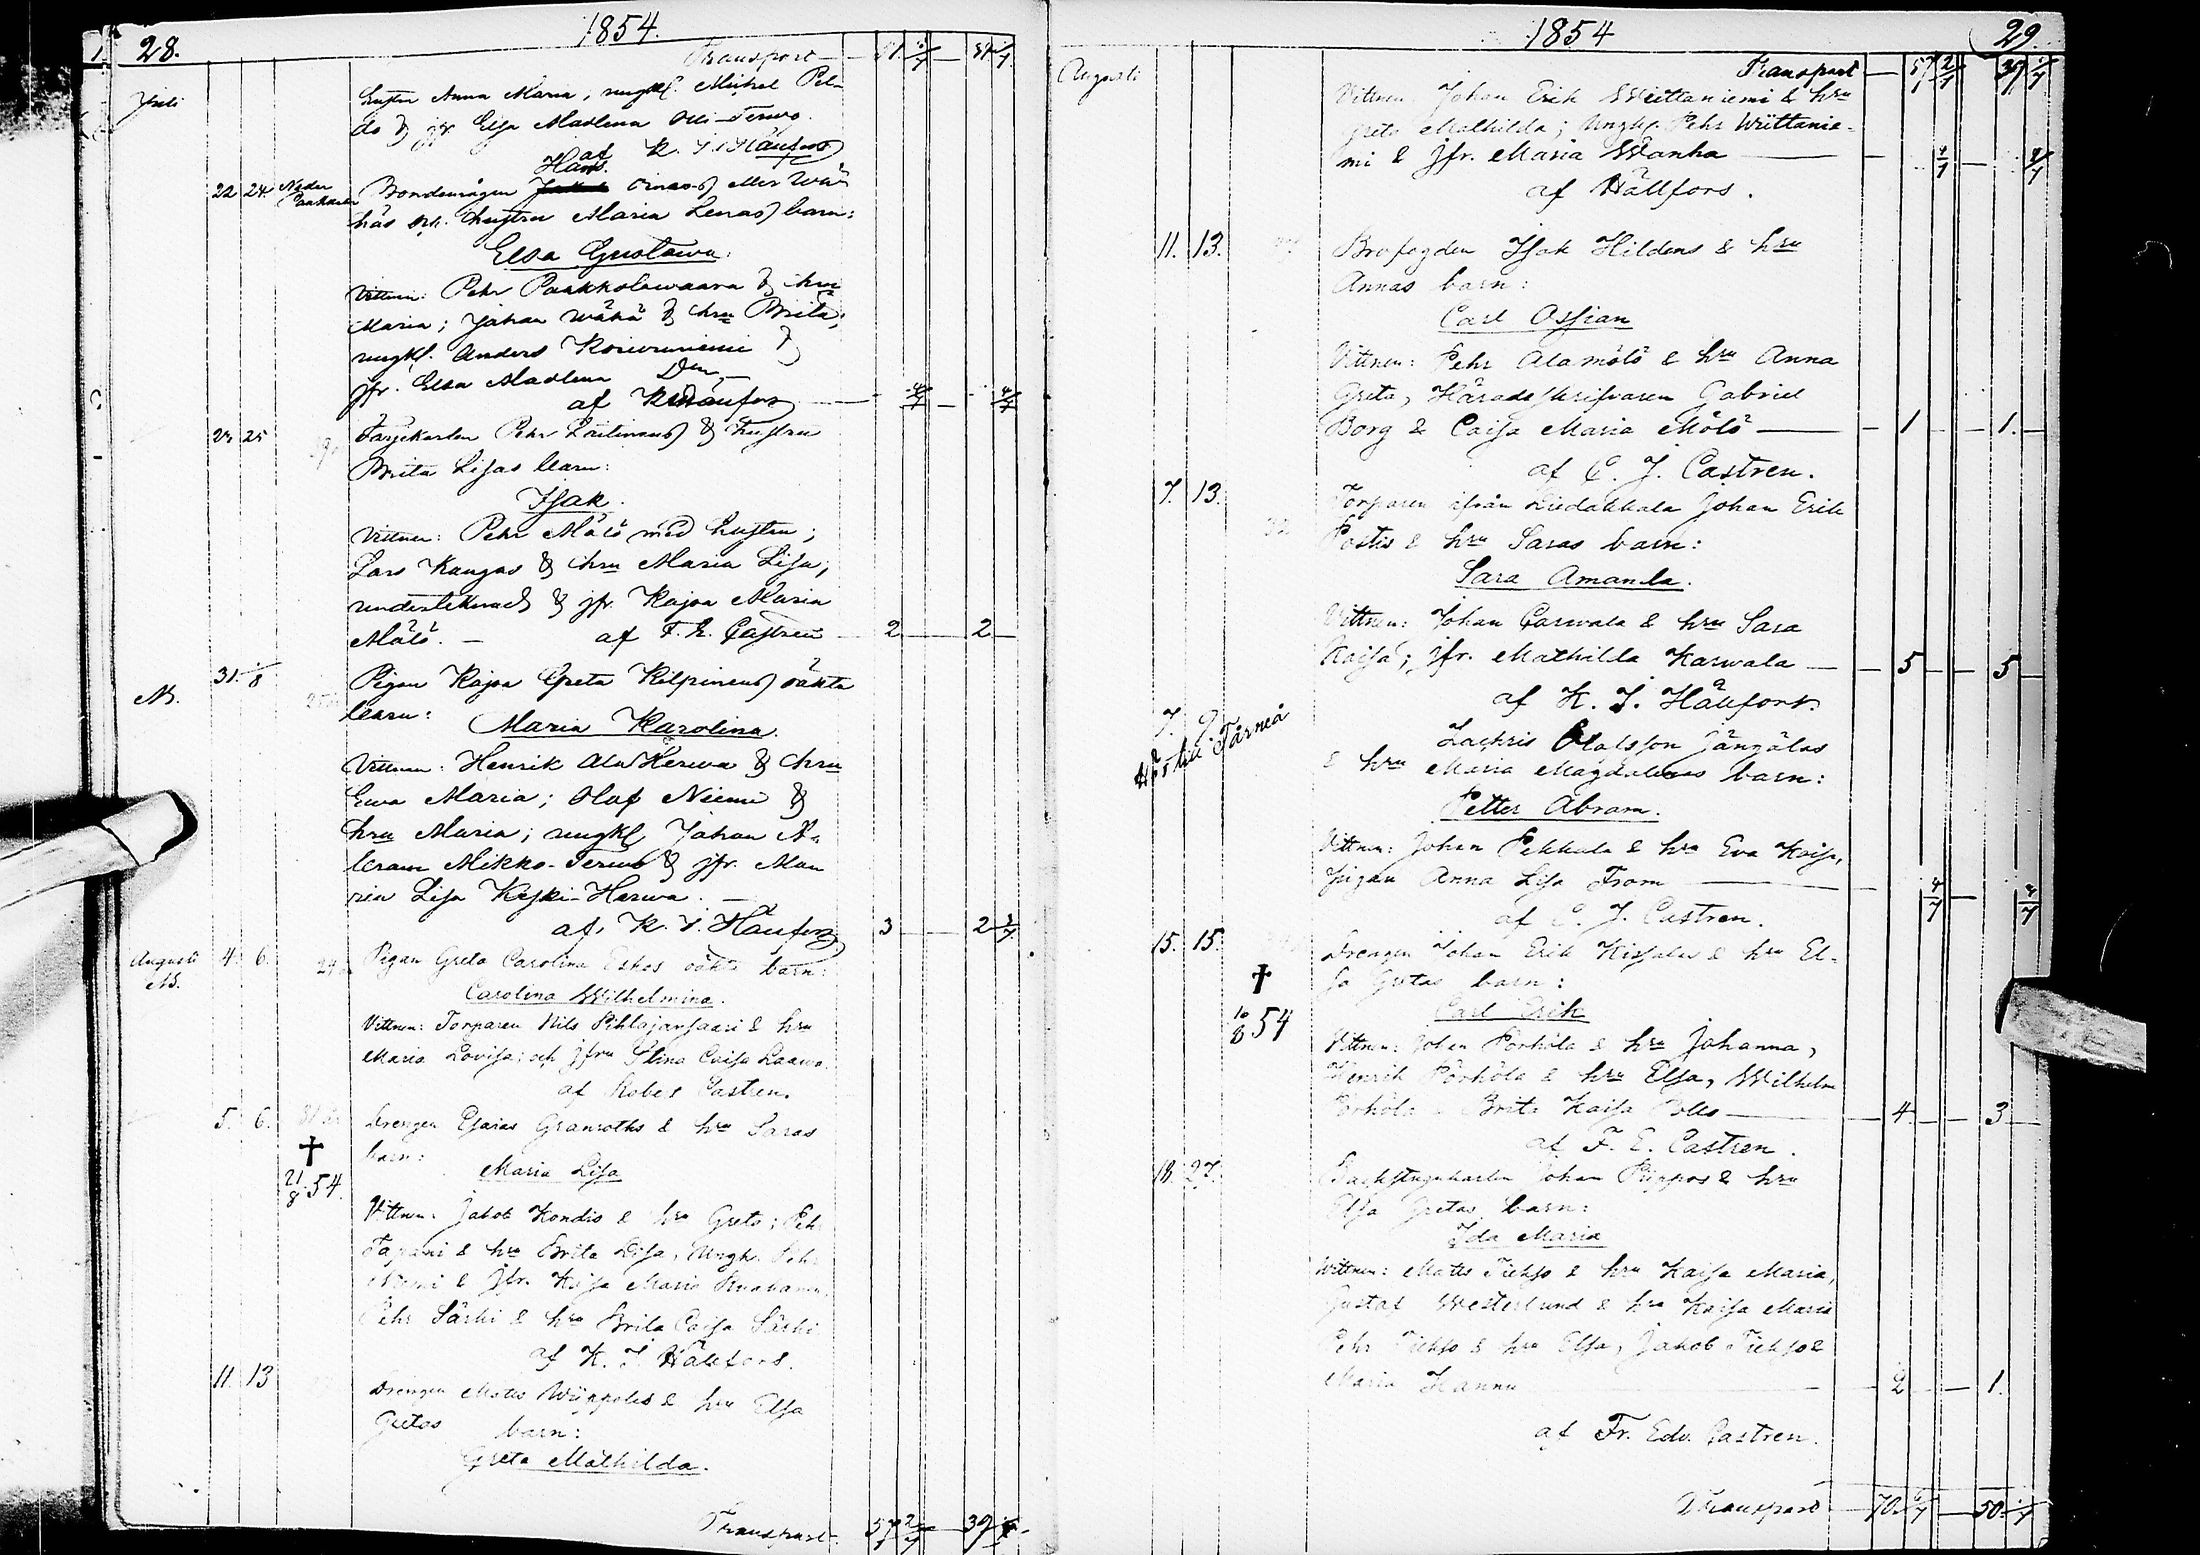 28.
1854.
Transport
Juli
hustru Anna Maria, ungk. Michel Pel-
do & jfr Elsa Madlena Olli-Terwo.
af K. J. Hällfors
Hans
22 24. Neder Paakkola Bondemågen Oinas eller Wä-
häs och hustru Maria Lenas barn:
Elsa Gustawa.
Vittnen: Pehr Paakkolawaara & hru
Maria; Johan Wähä & hru Brita;
ungk. Anders Koiwuniemi &
jfr. Elsa Madlena
af K. J. Hällfors
25 Färjekarlen Pehr & hustru
Brita Lisas barn:
Isak.
Vittnen: Pehr Mölö med hustru;
Lars Kangas & hru Maria Lisa;
undertecknad & jfr. Kajsa Maria
Mölö. — af F. E. Castrén 2 2
31. 1/8 Pigan Kajsa Greta Kilpinens oäkta
barn: Maria Karolina.
Vittnen: Henrik Ala Herwa & hru
Ewa Maria; Olof Niemi &
hru Maria; ungk. Johan A-
bram Mikko-Terwo & jfr. Ma-
ria Lisa Keski-Herwa. —
af K. J. Hällfors 3 2
Augusti 4. 6. Pigan Greta Carolina Eskos oäkta barn:
Carolina Wilhelmina.
Vittnen: Torparen Nils Pihlajansaari & hru
Maria Lovisa; och jfru Stina Caisa Laawa.
af Robert Castren.
5. 6. Drengen Esaias Granroths & hru Saras
barn: Maria Lisa
† 21/8 54.
Vittnen: Jakob Kondio & hru Greta; Pehr
Tapani & hru Brita Lisa, Ungk. Pehr
Niemi & Jfr. Kaisa Maria
Pehr Särki & hru Brita Caisa Särki
af K. J. Hällfors.
11. 13 Drengen Matts Wiippolas & hru Elsa
Gretas barn:
Greta Mathilda.
Transport 57 2/7 39
1854
29.
Augusti
Transport 57 2/7 39
Vittnen: Johan Erik Wiittaniemi & hru
Greta Mathilda; Ungk. Pehr Wiittanie-
mi & jfr. Maria Wanha — 4/7 4/7
af Hällfors.
11. 13. Brofogden Isak Hildens & hru
Annas barn:
Carl Ossian
Vittnen: Pehr Alamölö & hru Anna
Greta, Häradsskrifvaren Gabriel
Borg & Caisa Maria Mölö — 1 1.
af C. J. Castren.
7. 13. Torparen ifrån Liedakkala Johan Erik
Postis & hru Saras barn:
Sara Amanda.
Vittnen: Johan Carwala & hru Sara
Kaisa; jfr. Mathilda Karwala — 5 5
af K. J. Hällfors.
7. 9. Hör till Torneå
Zachris Olofsson Jängälas
& hru Maria Magdalenas barn:
Petter Abram.
Vittnen: Johan Pekkala & hru Eva Kaisa,
Pigan Anna Lisa From — 4/7 4/7
af C. J. Castren.
15. 15. Drengen Johan Erik Kissalas & hru El-
sa Gretas barn:
Carl Erik
† 16/8 54
Vittnen: Johan Pörhölä & hru Johanna,
Henrik Pörhölä & hru Elsa, Wilhelm
Pörhölä & Brita Kaisa Pollo — 4. 3
af F. E. Castren.
18. 27. Backstugukarlen Johan Piippos & hru
Elsa Gretas barn:
Ida Maria
Vittnen: Matts Tiekso & hru Kaisa Maria,
Gustaf Westerlund & hru Kaisa Maria
Pehr Tiekso & hru Elsa, Jakob Tiekso &
Maria Hannu 2 1.
af Fr. Edv. Castren.
Transport 70 6/7 50